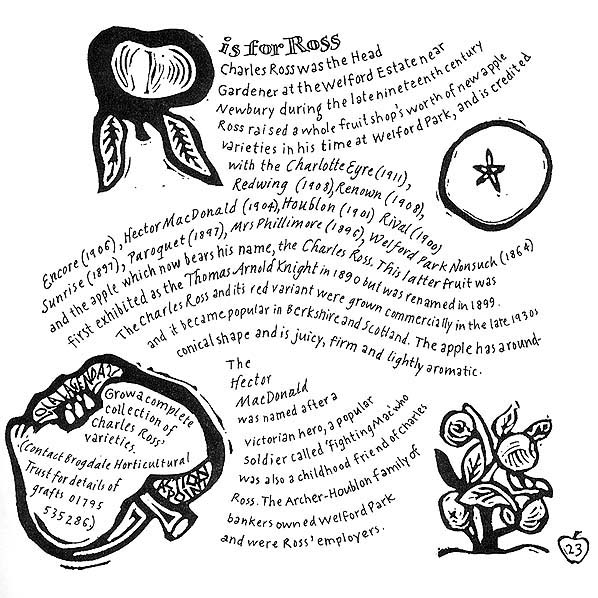 is for Ross
Charles Ross was the Head
Gardener at the Welford Estate near
Newbury during the late nineteenth century
Ross raised a whole fruit shop's worth of new apple
varieties in his time at Welford Park, and is credited
with the Charlotte Eyre (1911),
Redwing (1908), Renown (1908),
Encore (1906), Hector MacDonald (1904), Houblon (1901) Rival (1900)
Sunrise (1897), Paroquet (1897), Mrs Phillimore (1896), Welford Park Nonsuch (1864)
and the apple which now bears his name, the Charles Ross. This latter fruit was
first exhibited as the Thomas Arnold Knight in 1890 but was renamed in 1899.
The Charles Ross and its red variant were grown commercially in the late 1930s
and it became popular in Berkshire and Scotland. The apple has a round-
conical shape and is juicy, firm and lightly aromatic.
The
Hector
MacDonald
was named after a
victorian hero, a popular
soldier called 'Fighting Mac' who
was also a childhood friend of Charles
Ross. The Archer-Houblon family of
bankers owned Welford Park
and were Ross' employers.
Grow a complete
collection of
Charles Ross'
varieties.
(Contact Brogdale Horticultural
Trust for details of
grafts 01795
535286.)
ACTION
POINT
23